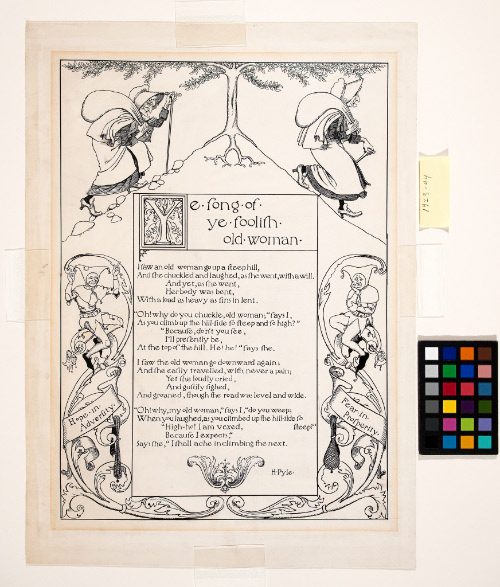 Ye · song · of ·
ye · foolish ·
old · woman ·
I saw an old woman go up a steep hill,
And she chuckled and laughed, as she went, with a will.
And yet, as she went,
Her body was bent,
With a load as heavy as sins in lent.
"Oh! why do you chuckle, old woman;" says I,
As you climb up the hill-side so steep and so high?"
"Because, don't you see,
I'll presently be,
At the top of the hill. He! he!" says she.
I saw the old woman go downward again;
And she easily travelled, with never a pain;
Yet she loudly cried,
And gustily sighed,
And groaned, though the road was level and wide.
"Oh! why, my old woman," says I, "do you weep,
When you laughed, as you climbed up the hill-side so
"High-ho! I am vexed, steep?"
Because I expects,"
Says she, "I shall ache in climbing the next.
Hope · in ·
Adversity ·
Fear · in ·
Prosperity ·
H · Pyle ·
1923-04